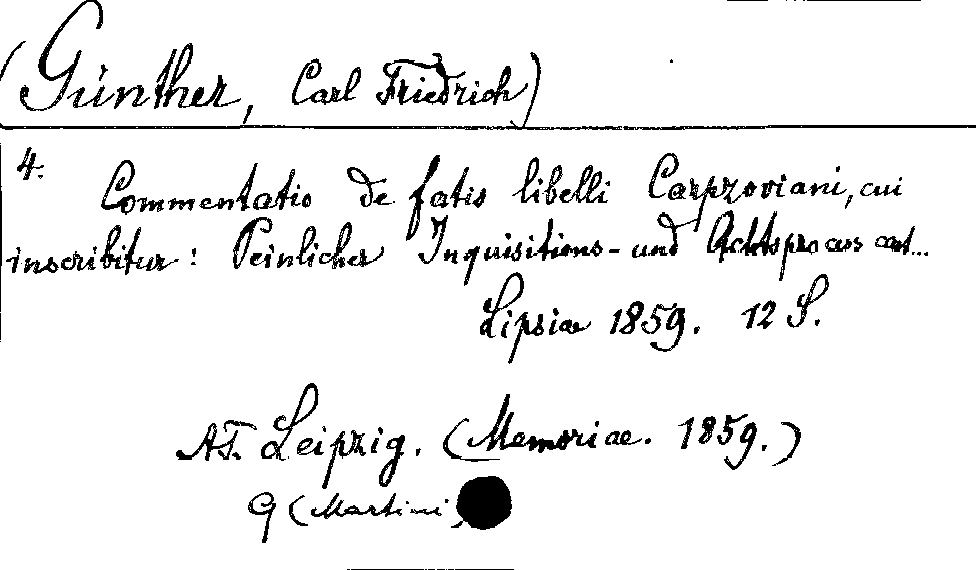 (Günther, Carl Friedrich)
4.
Commentatio de fatis libelli Carpzoviani, cui
inscribitur: Peinlicher Inquisitions- und Achtsprocess cet...
Lipsiae 1859. 12 S.
AT. Leipzig. (Memoriae. 1859.)
G (Martini)